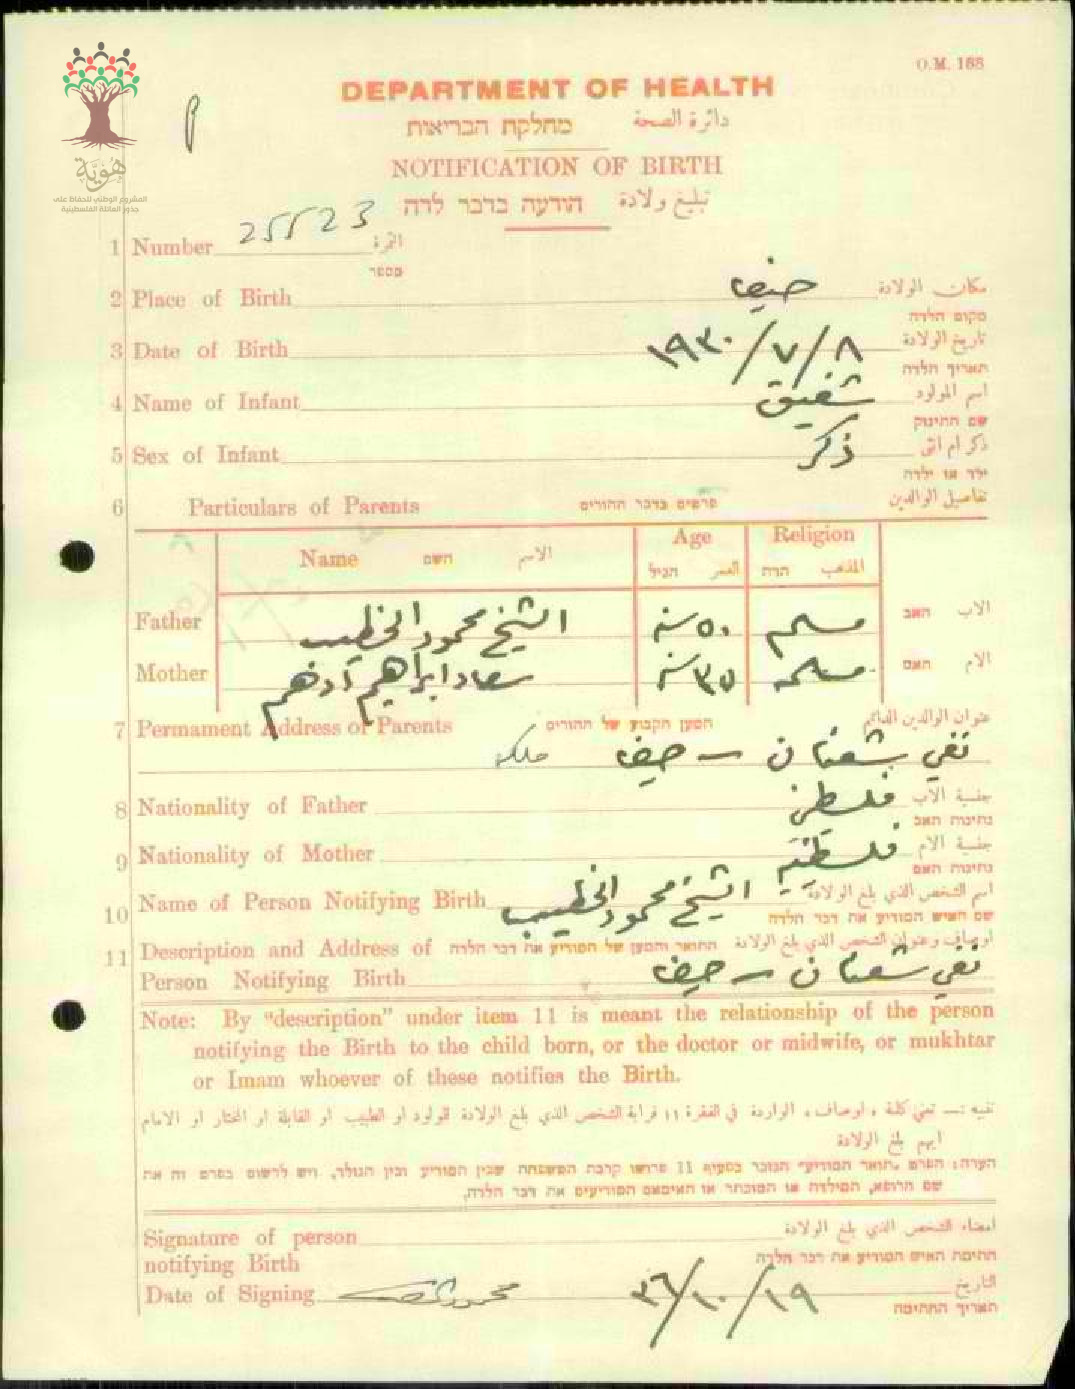 هُوِيَّة
المشروع الوطني للحفاظ على
جذور العائلة الفلسطينية
O.M. 188
DEPARTMENT OF HEALTH
מחלקת הבריאות دائرة الصحة
NOTIFICATION OF BIRTH
הודעה בדבר לדה تبليغ ولادة
1 Number 25523 النمرة
מספר
2 Place of Birth حيفا مكان الولادة
מקום הלדה
3 Date of Birth ٨/٧/١٩٣٠ تاريخ الولادة
תאריך הלדה
4 Name of Infant شفيق اسم المولود
שם התינוק
5 Sex of Infant ذكر ذكر ام انثى
ילד או ילדה
6 Particulars of Parents פרטים בדבר ההורים تفاصيل الوالدين
Name השם الاسم Age הגיל العمر Religion הדת المذهب
Father الشيخ محمود الخطيب ٥٠ سنة مسلم האב الاب
Mother سعاد ابراهيم ادهم ٣٥ سنة مسلمة האם الام
7 Permament Address of Parents המען הקבוע של ההורים عنوان الوالدين الدائم
حيفا
8 Nationality of Father فلسطيني جنسية الاب
נתינות האב
9 Nationality of Mother فلسطينية جنسية الام
נתינות האם
10 Name of Person Notifying Birth الشيخ محمود الخطيب اسم الشخص الذي بلغ الولادة
שם האיש המודיע את דבר הלדה
11 Description and Address of התואר והמען של המודיע את דבר הלדה اوصاف وعنوان الشخص الذي بلغ الولادة
Person Notifying Birth حيفا
Note: By "description" under item 11 is meant the relationship of the person
notifying the Birth to the child born, or the doctor or midwife, or mukhtar
or Imam whoever of these notifies the Birth.
تنبيه :— تعني كلمة «اوصاف» الواردة في الفقرة ١١ قرابة الشخص الذي بلغ الولادة للمولود او الطبيب او القابلة او المختار او الامام
ايهم بلغ الولادة
הערה: הפרט „תואר המודיע" הנזכר בסעיף 11 פרושו קרבת המשפחה שבין המודיע ובין הנולד, ויש לרשום בפרט זה את
שם הרופא, המילדה או המוכתר או האימאם המודיעים את דבר הלדה.
Signature of person امضاء الشخص الذي بلغ الولادة
notifying Birth חתימת האיש המודיע את דבר הלדה
Date of Signing ١٩/١٠/٣٦ التاريخ
תאריך החתימה